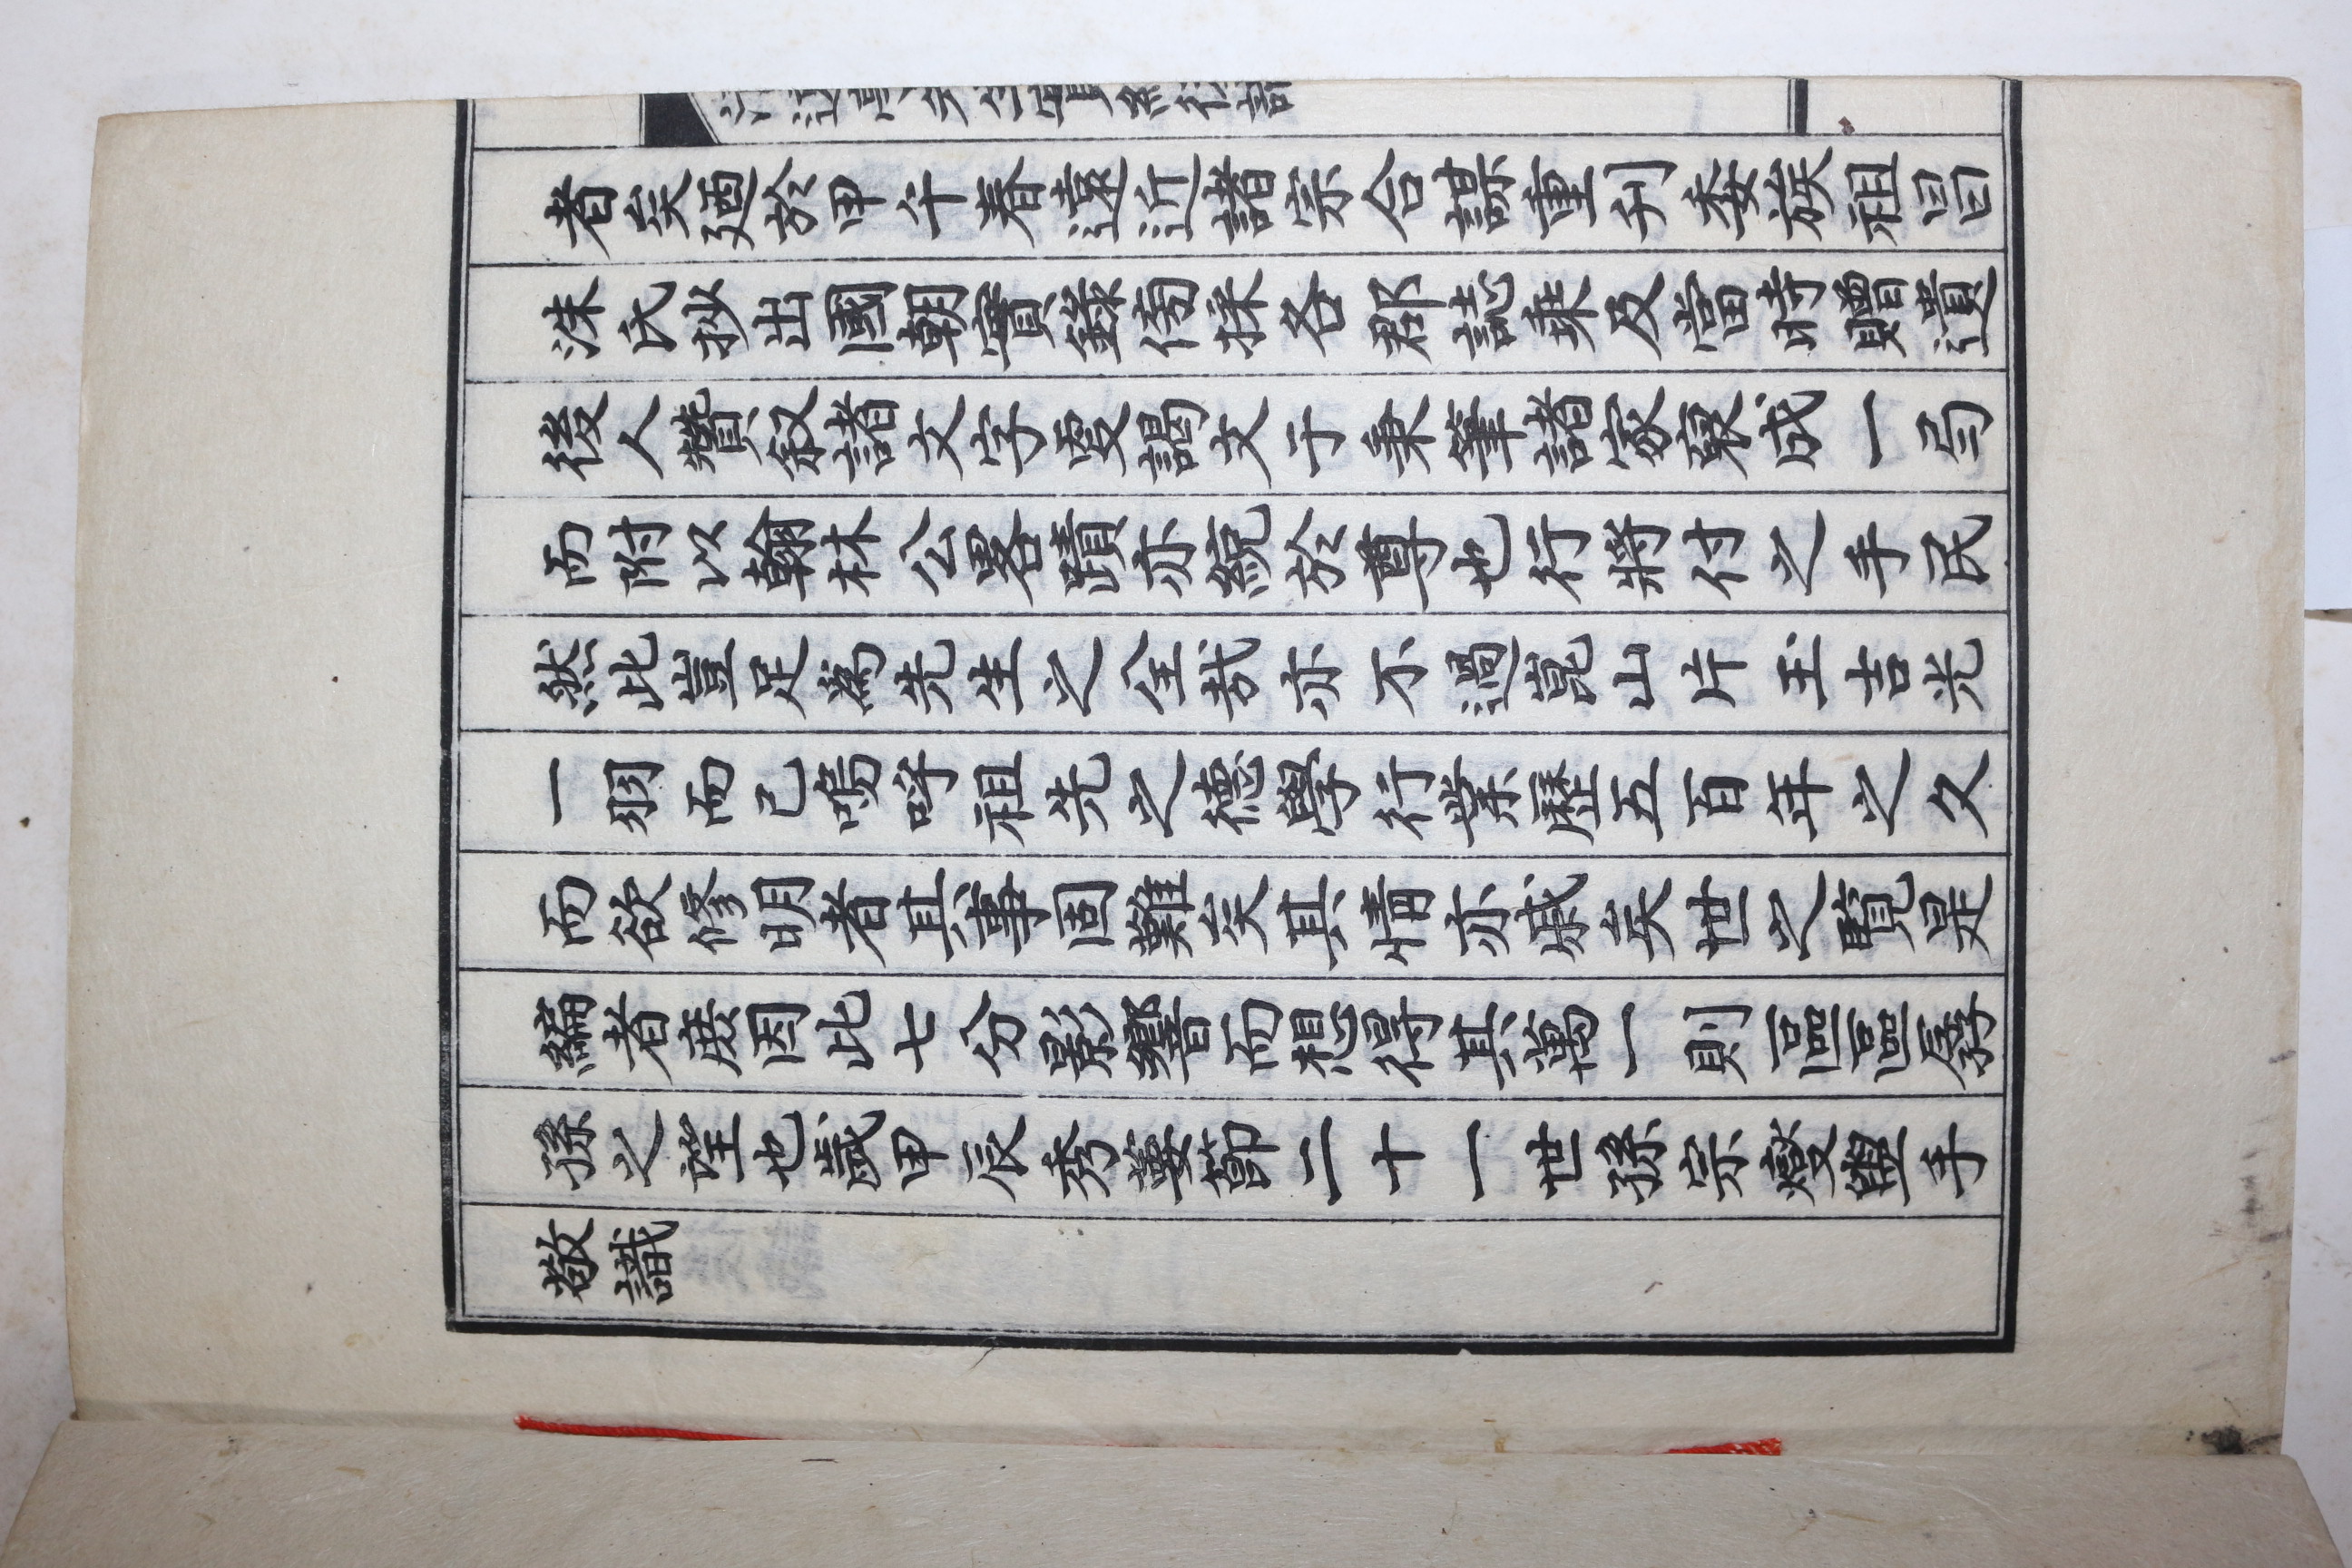 者矣廼於甲午春遠近諸宗合謀重刊委族祖昌
洙氏抄出國朝實錄傍採各郡誌乘及當時贈遺
後人贊叙諸文字更謁文于秉筆諸家裒成一局
而附以翰林公畧蹟亦統於尊也行將付之手民
然此豈足爲先生之全哉亦不過崑山片玉吉光
一羽而已嗚呼祖先之德學行業歷五百年之久
而欲修明者其事固難矣其情亦戚矣世之覽是
編者庶因此七分影響而想得其萬一則區區孱
孫之望也歲甲辰秀葽節二十一世孫宗燮盥手
敬識